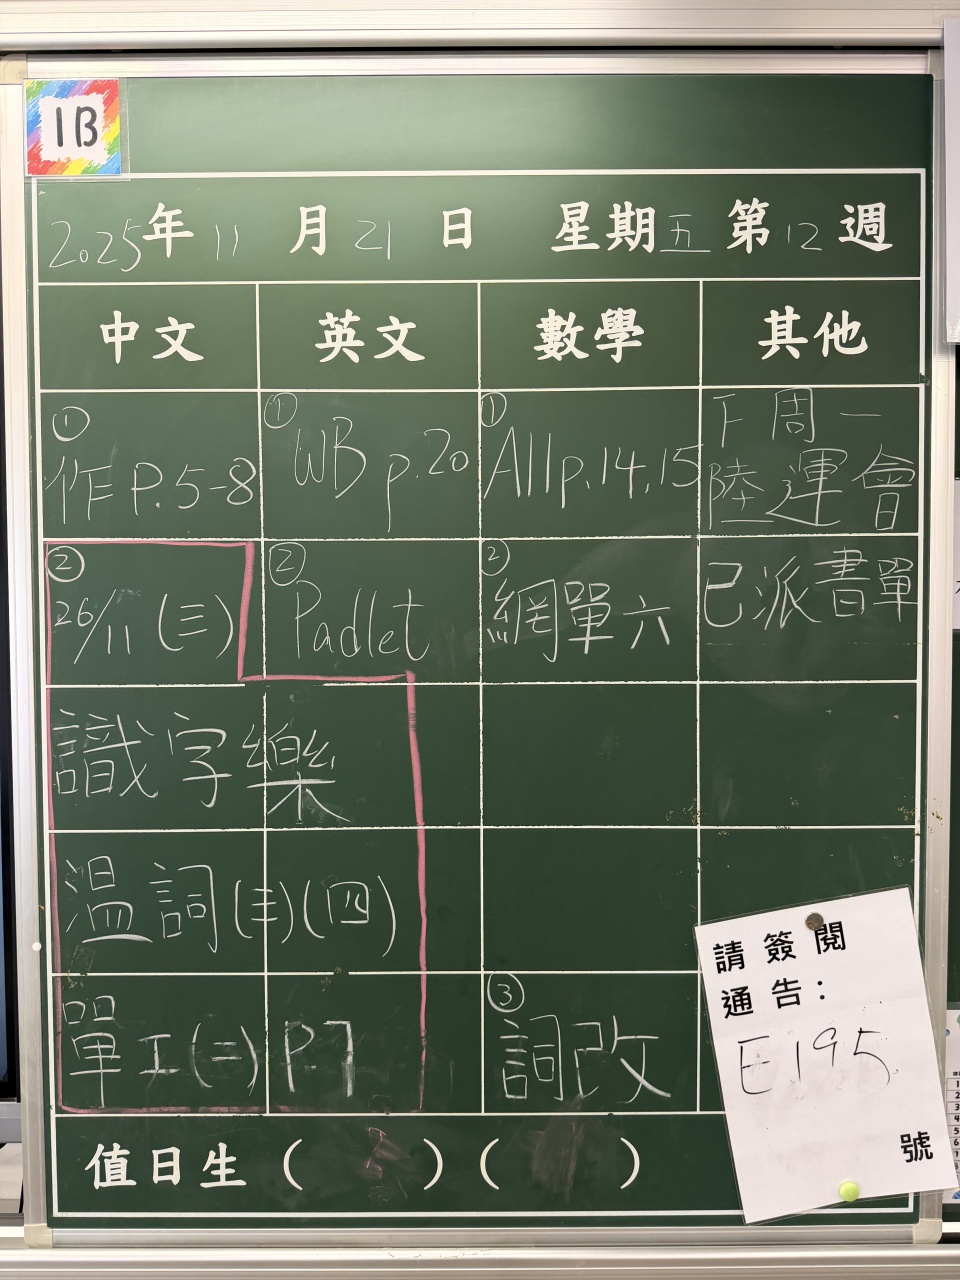 1B
2025年 11 月 21 日 星期五 第 12 週
中文 英文 數學 其他
①
作 P.5-8
② 26/11 (三)
識字樂
溫詞(三)(四)
單工(二) P.7
① WB p.20
② Padlet
① All p.14,15
② 網單六
③ 詞改
下周一
陸運會
已派書單
請簽閱
通告：
E195
號
值日生 ( ) ( )